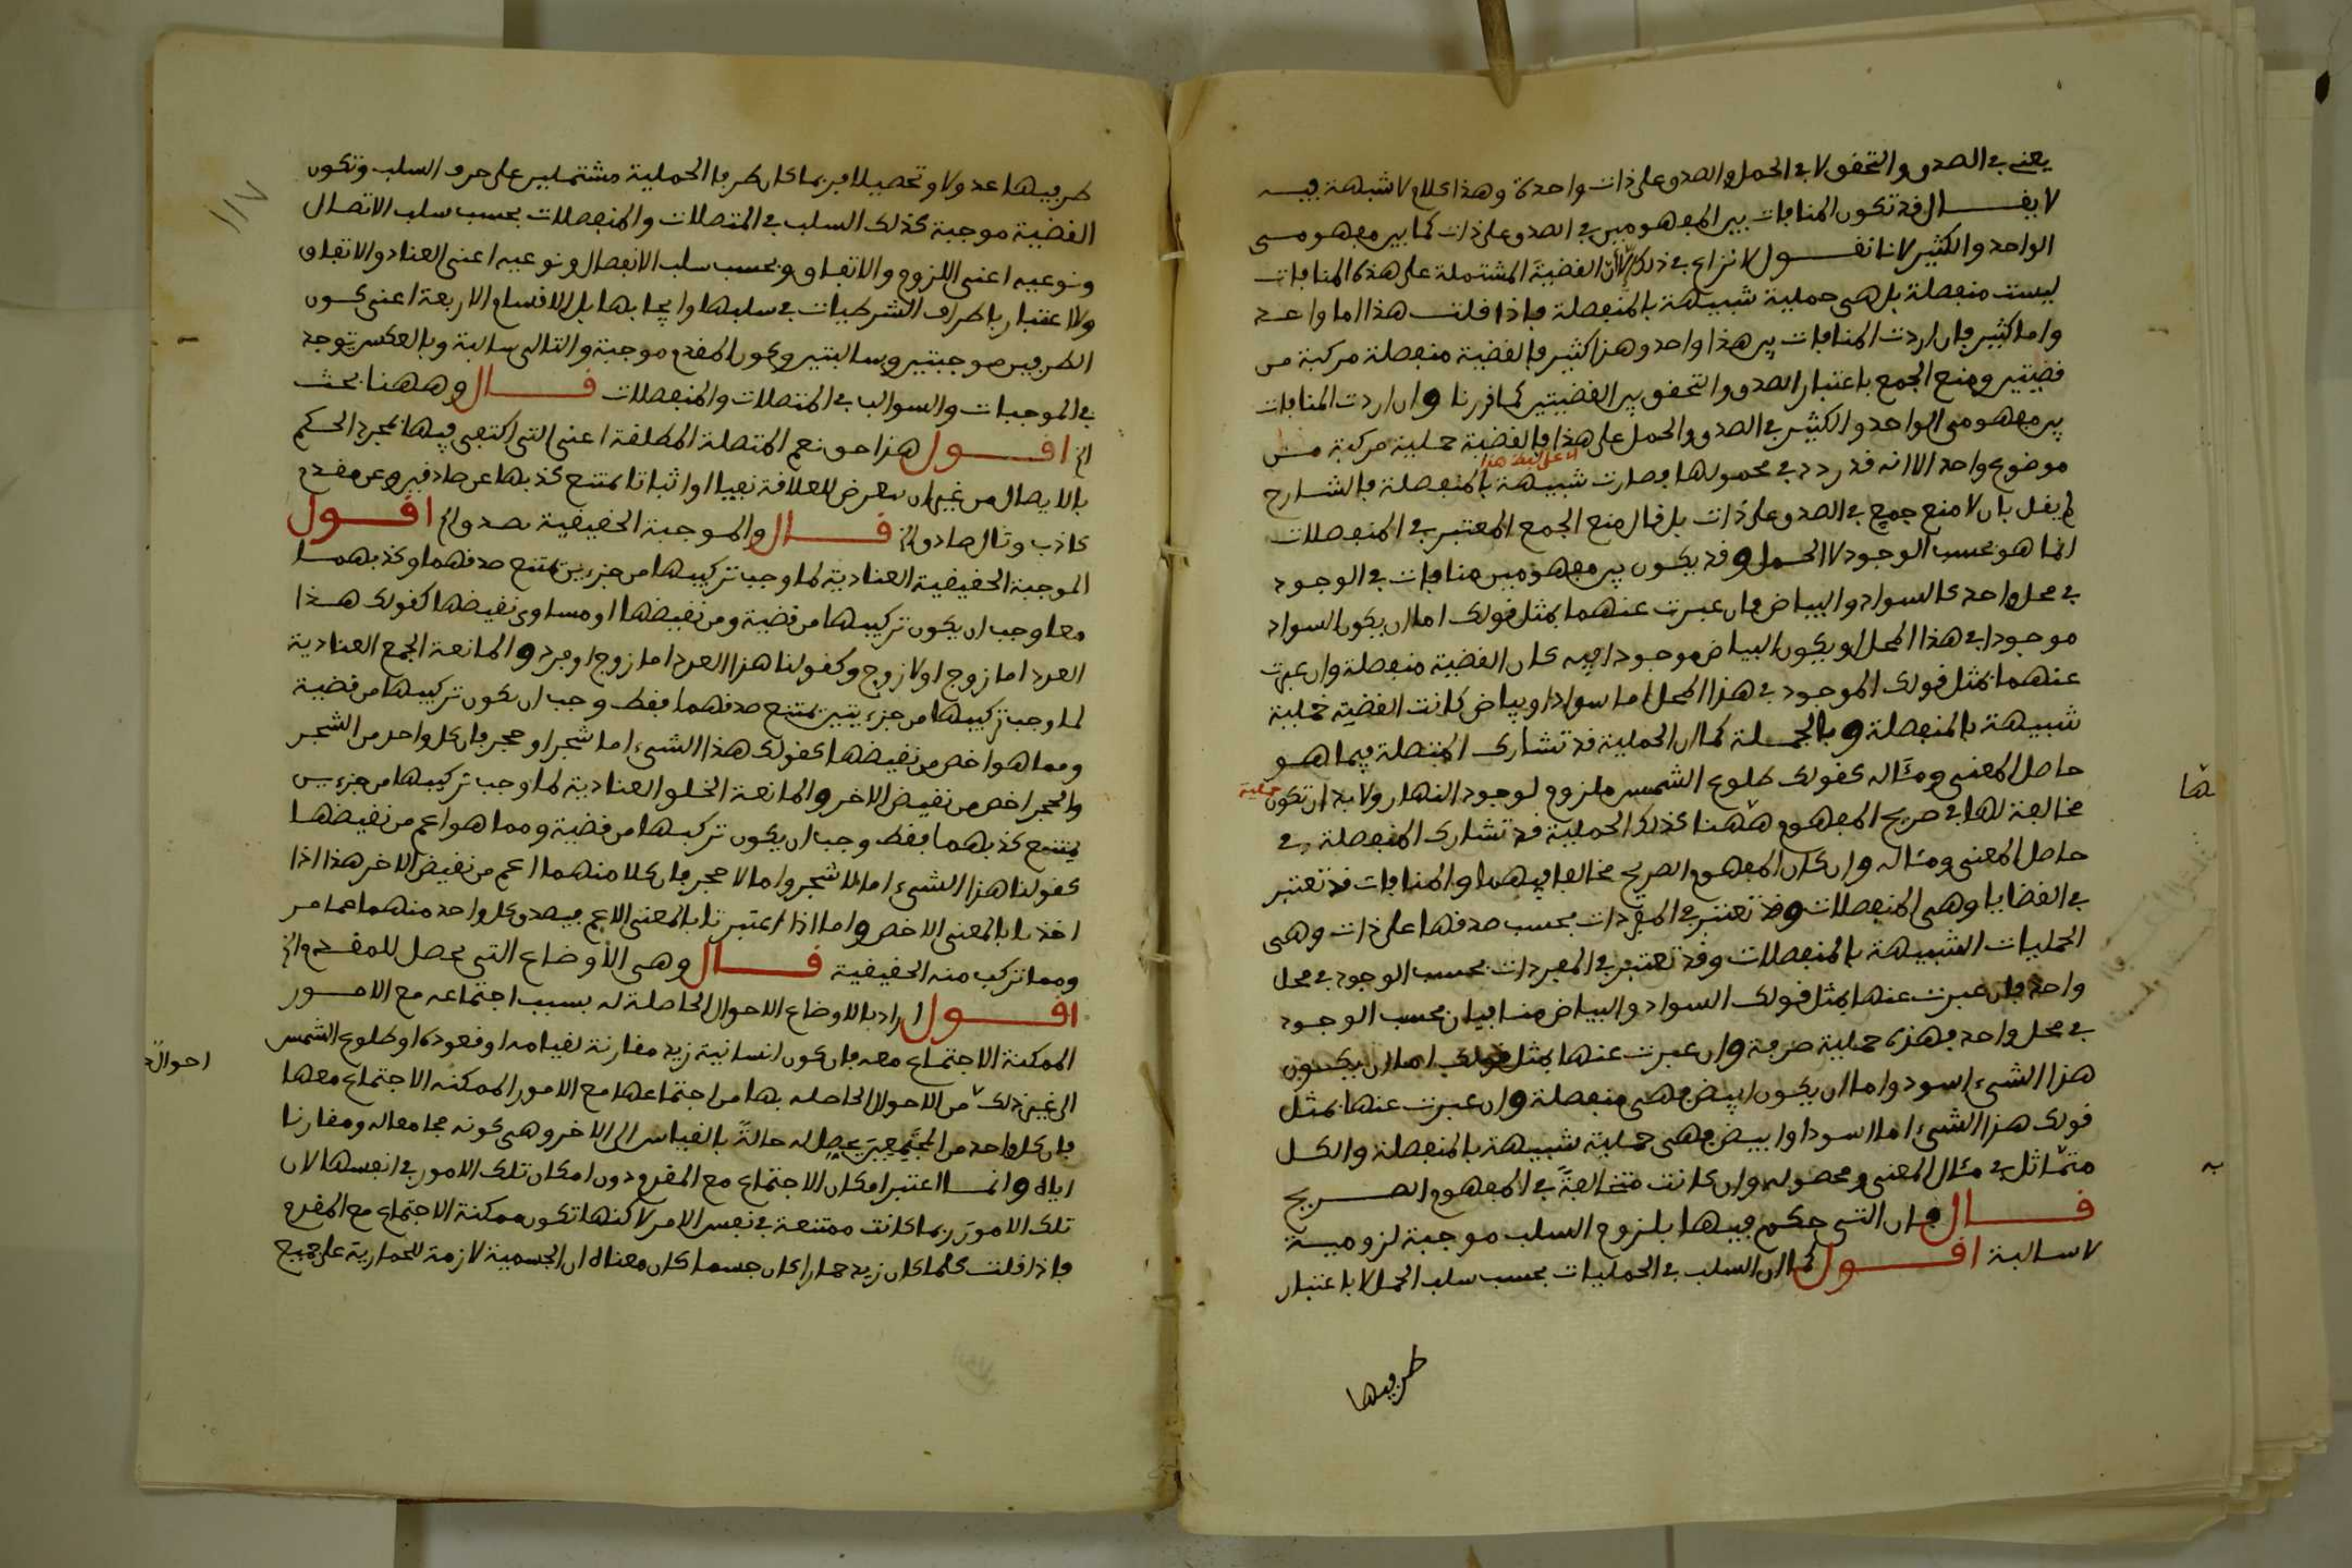 يعني في الصدق والتحقق لا في الحمل والصدق على ذات واحدة وهذا كلام لا شبهة فيه
لا يقال قد تكون المنافات بين المفهومين في الصدق على ذات كما بين مفهومي
الواحد والكثير لانا نقول لا نزاع في ذلك الا ان القضية المشتملة على هذه المنافات
ليست منفصلة بل هي حملية شبيهة بالمنفصلة فاذا قلت هذا اما واحد
واما كثير فان اردت المنافات بين هذا واحد وهذا كثير فالقضية منفصلة مركبة من
قضيتين ومنع الجمع باعتبار الصدق والتحقق بين القضيتين كما قررنا وان اردت المنافات
بين مفهومي الواحد والكثير في الصدق والحمل على هذا فالقضية حملية مركبة من
موضوع واحد الا انه قد ردد في محمولها فصارت شبيهة بالمنفصلة فالشارح
لم يقل بان لا منع جمع في الصدق على ذات بل قال منع الجمع المعتبر في المنفصلات
انما هو بحسب الوجود لا الحمل وقد يكون بين مفهومين منافات في الوجود
في محل واحد كالسواد والبياض فان عبرت عنهما بمثل قولك اما ان يكون السواد
موجودا في هذا المحل او يكون البياض موجودا فيه كان القضية منفصلة وان عبرت
عنهما بمثل قولك الموجود في هذا المحل اما سواد او بياض كانت القضية حملية
شبيهة بالمنفصلة وبالجملة كما ان الحملية قد تشارك المتصلة فيما هو
حاصل المعنى ومئاله كقولك طلوع الشمس ملزوم لوجود النهار ولا بد ان تكون حملية
مخالفة لها في صريح المفهوم ههنا كذلك الحملية قد تشارك المنفصلة في
حاصل المعنى ومئاله وان كان المفهوم الصريح مخالفا فيهما والمنافات قد تعتبر
في القضايا وهي المنفصلات وقد تعتبر في المفردات بحسب صدقها على ذات وهي
الحمليات الشبيهة بالمنفصلات وقد تعتبر في المفردات بحسب الوجود في محل
واحد فان عبرت عنها بمثل قولك السواد والبياض منافيان بحسب الوجود
في محل واحد فهذه حملية صرفة وان عبرت عنها بمثل قولك اما ان يكون
هذا الشيء اسود واما ان يكون ابيض فهي منفصلة وان عبرت عنها بمثل
قولك هذا الشيء اما اسود او ابيض فهي حملية شبيهة بالمنفصلة والكل
متماثل في مئال المعنى ومحصوله وان كانت متخالفة في المفهوم الصريح
قال فان التي حكم فيها بلزوم السلب موجبة لزومية
لا سالبة اقول كما ان السلب في الحمليات بحسب سلب الحمل لا باعتبار
طرفيها
ها
به
١١٧
طرفيها عدولا وتحصيلا فربما كان طرفا الحملية مشتملين على حرف السلب وتكون
القضية موجبة كذلك السلب في المتصلات والمنفصلات بحسب سلب الاتصال
ونوعيه اعني اللزوم والاتفاق وبحسب سلب الانفصال ونوعيه اعني العناد والاتفاق
ولا اعتبار باطراف الشرطيات في سلبها وايجابها بل الاقسام الاربعة اعني كون
الطرفين موجبتين وسالبتين وكون المقدم موجبة والتالي سالبة وبالعكس توجد
في الموجبات والسوالب في المتصلات والمنفصلات قال وههنا بحث
الخ اقول هذا حق نعم المتصلة المطلقة اعني التي اكتفي فيها بمجرد الحكم
بالايصال من غير ان يتعرض للعلاقة نفيا او اثباتا يمتنع كذبها عن صادقين وعن مقدم
كاذب وتال صادق الخ قال والموجبة الحقيقية تصدق الخ اقول
الموجبة الحقيقية العنادية لما وجب تركيبها من جزءين يمتنع صدقهما وكذبهما
معا وجب ان يكون تركيبها من قضية ومن نقيضها او مساوي نقيضها كقولك هذا
العدد اما زوج او لا زوج وكقولنا هذا العدد اما زوج او فرد والمانعة الجمع العنادية
لما وجب تركيبها من جزءيين يمتنع صدقهما فقط وجب ان يكون تركيبها من قضية
ومما هو اخص من نقيضها كقولك هذا الشيء اما شجر او حجر فان كل واحد من الشجر
والحجر اخص من نقيض الاخر والمانعة الخلو العنادية لما وجب تركيبها من جزءين
يمتنع كذبهما فقط وجب ان يكون تركيبها من قضية ومما هو اعم من نقيضها
كقولنا هذا الشيء اما لا شجر واما لا حجر فان كلا منهما اعم من نقيض الاخر هذا اذا
اخذنا بالمعنى الاخص واما اذا اعتبرتا بالمعنى الاعم فيصدق كل واحد منهما عما مر
ومما تركب منه الحقيقية قال وهي الأوضاع التي تحصل للمقدم الخ
اقول اراد بالاوضاع الاحوال الحاصلة له بسبب اجتماعه مع الامور
الممكنة الاجتماع معه فان كون انسانية زيد مقارنة لقيامه او قعوده او طلوع الشمس
الى غير ذلك من الاحوال الحاصله بها من اجتماعها مع الامور الممكنه الاجتماع معها
فان كل واحد من المجتمعين يحصل له حالة بالقياس الى الاخر وهي كونه مجامعا له ومقارنا
اياه وانما اعتبر امكان الاجتماع مع المقدم دون امكان تلك الامور في انفسها لان
تلك الامور ربما كانت ممتنعة في نفس الامر لاكنها تكون ممكنة الاجتماع مع المقدم
فاذا قلت كلما كان زيد حمارا كان جسما كان معناه ان الجسمية لازمة للحمارية على جميع
احوال